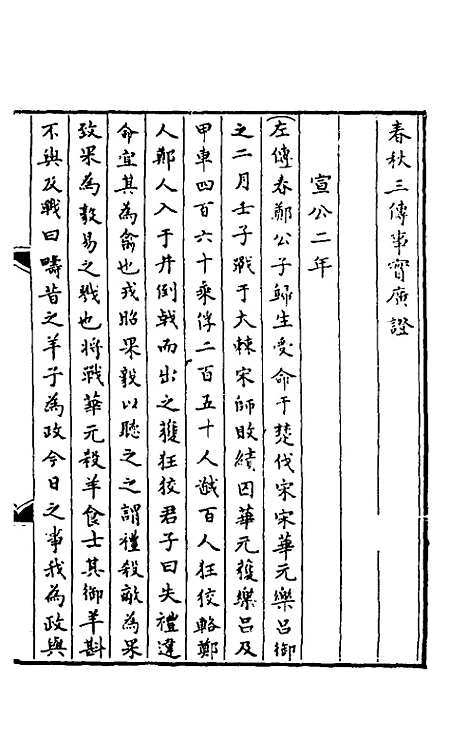 春秋三傳事實廣證
宣公二年
左傳春鄭公子歸生受命于楚伐宋宋華元樂呂御
之二月壬子戰于大棘宋師敗績囚華元獲樂呂及
甲車四百六十乘俘二百五十人馘百人狂狡輅鄭
人鄭人入于井倒戟而出之獲狂狡君子曰失禮違
命宜其為禽也戎昭果毅以聽之之謂禮殺敵為果
致果為毅易之戮也將戰華元殺羊食士其御羊斟
不與及戰曰疇昔之羊子為政今日之事我為政與